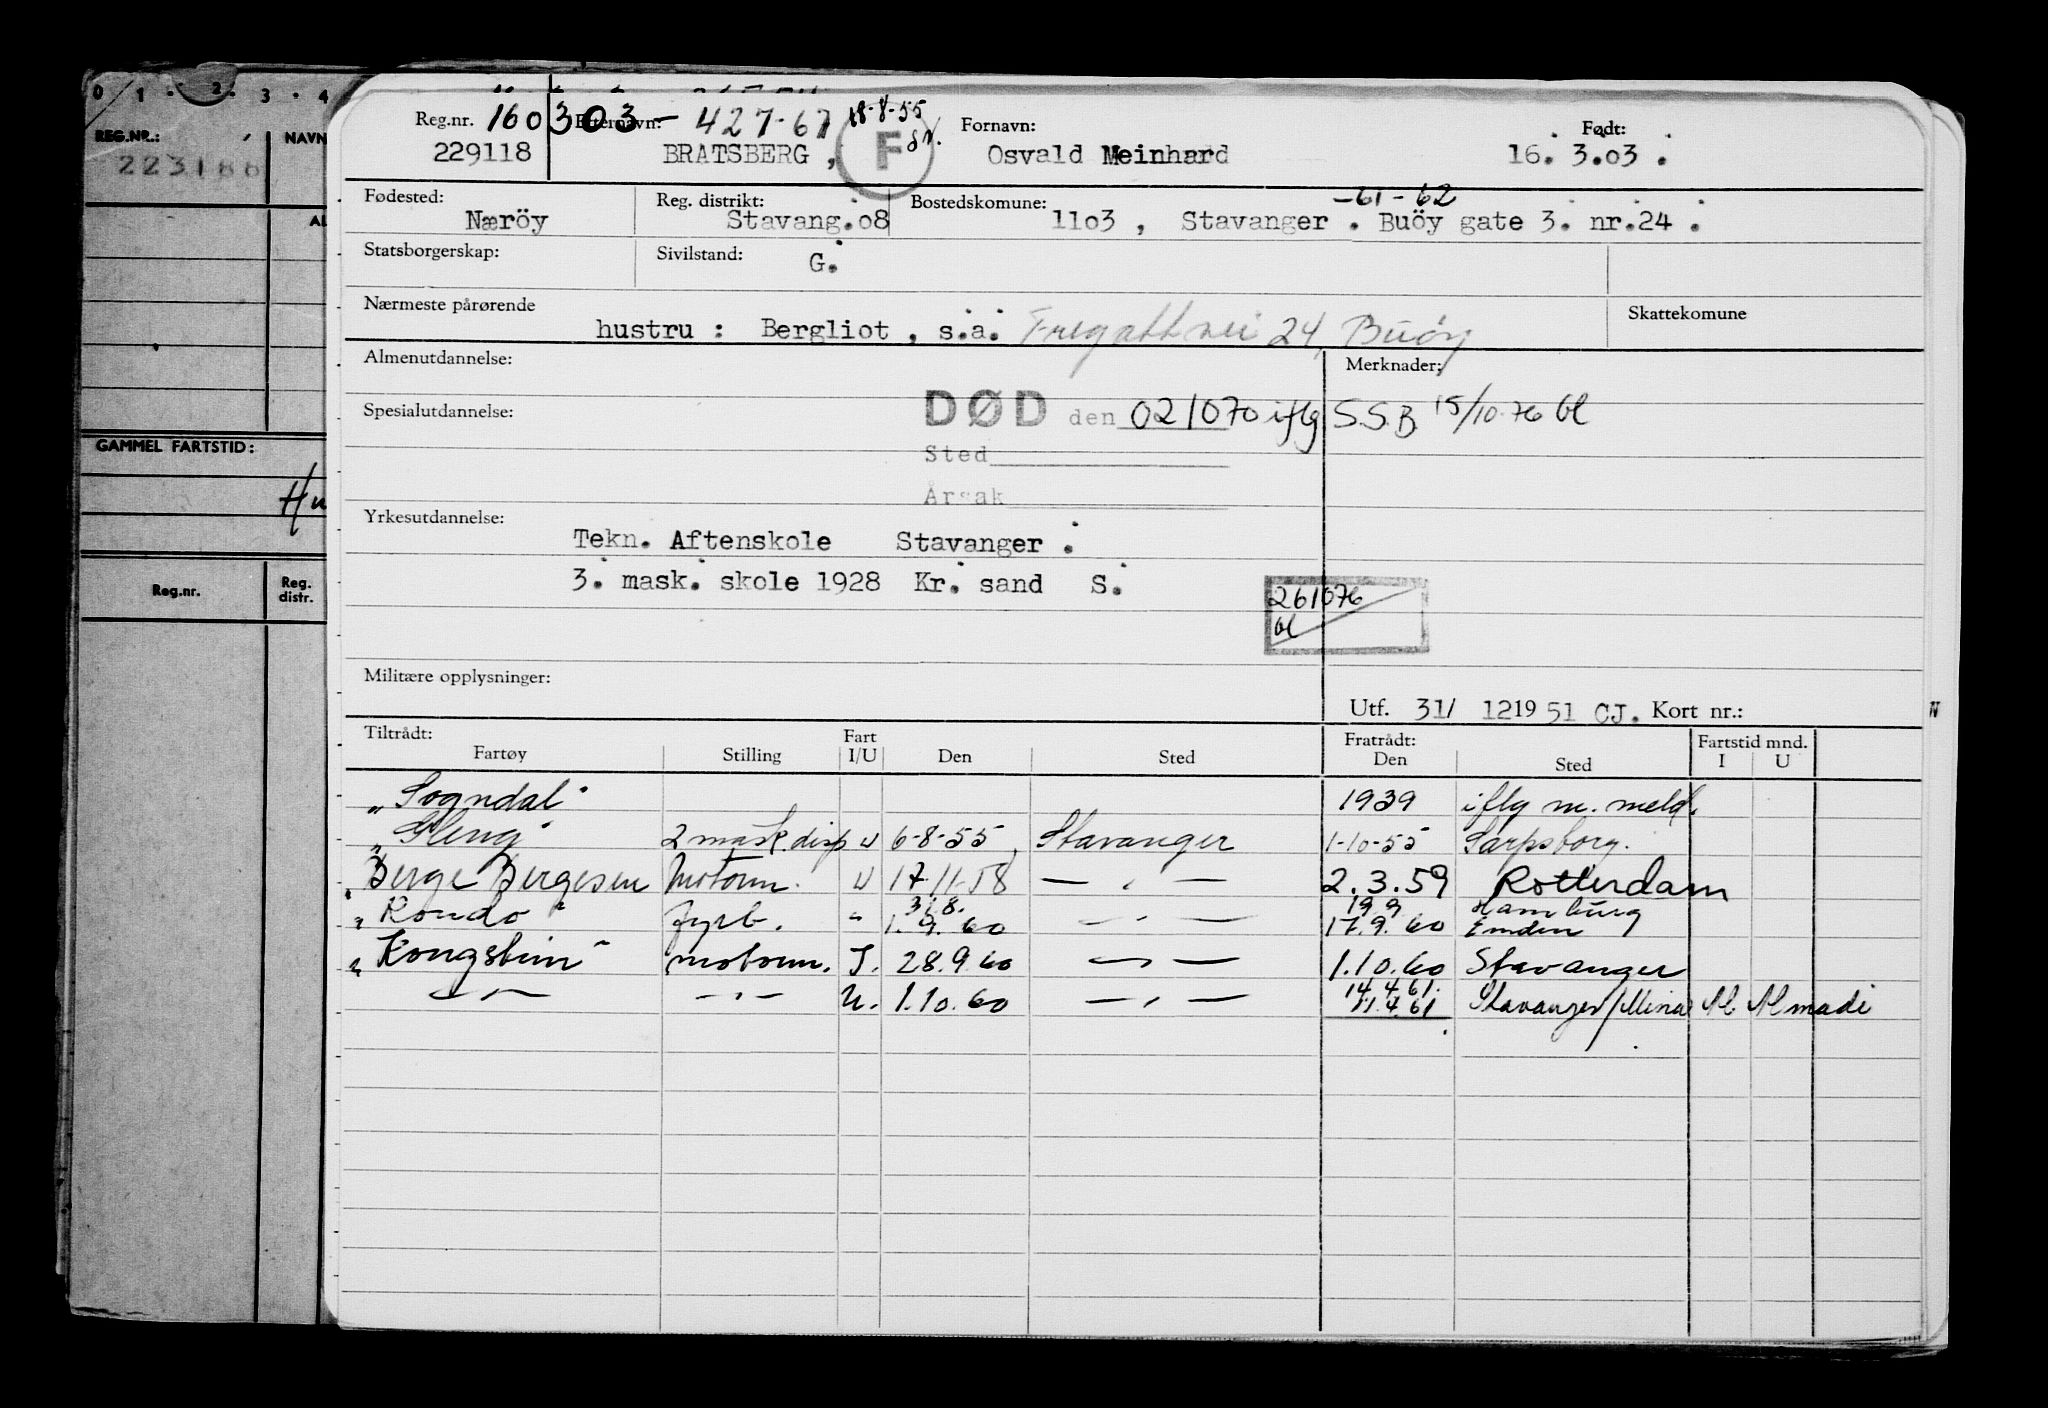 0 1 . 2 . 3 . 4
REG.NR.: NAVN
223188
GAMMEL FARTSTID:
Hu
Reg.nr. Reg. distr.
Reg.nr. 160303-427-67 18-8-55 Fornavn: Født:
229118 BRATSBERG, F Osvald Meinhard 16. 3.03.
Fødested: Reg. distrikt: Bostedskomune: -61-62
Nærøy Stavang.08 1103, Stavanger. Buøy gate 3. nr.24.
Statsborgerskap: Sivilstand: G.
Nærmeste pårørende Skattekomune
hustru: Bergliot, s.a. Fregattvei 24, Buöy
Almenutdannelse: Merknader:
Spesialutdannelse: DØD den 021070 iflg S.S.B 15/10-76 bl
Sted
Årsak
Yrkesutdannelse:
Tekn. Aftenskole Stavanger.
3. mask. skole 1928 Kr. sand S.
261076
bl
Militære opplysninger:
Utf. 31/ 1219 51 CJ. Kort nr.: N
Tiltrådt: Fart Fratrådt: Fartstid mnd.
Fartøy Stilling I/U Den Sted Den Sted I U
"Sogndal" 1939 iflg m. meld.
"Gleng" 2 mask.disp U 6-8-55, Stavanger 1-10-55 Sarpsborg.
"Berge Bergesen Motorm. U 17-11-58 — " — 2.3.59 Rotterdam
31.8. 19 9 Hamburg
"Rondo" fyrb. " 1.9.60 — " — 17.9.60 Emden
"Kongstein" motorm. I. 28.9.60 — " — 1.10.60 Stavanger
14.4.61.
— " — — " — U. 1.10.60 — " — 11.4.61 Stavanger/Mina Al Ahmadi